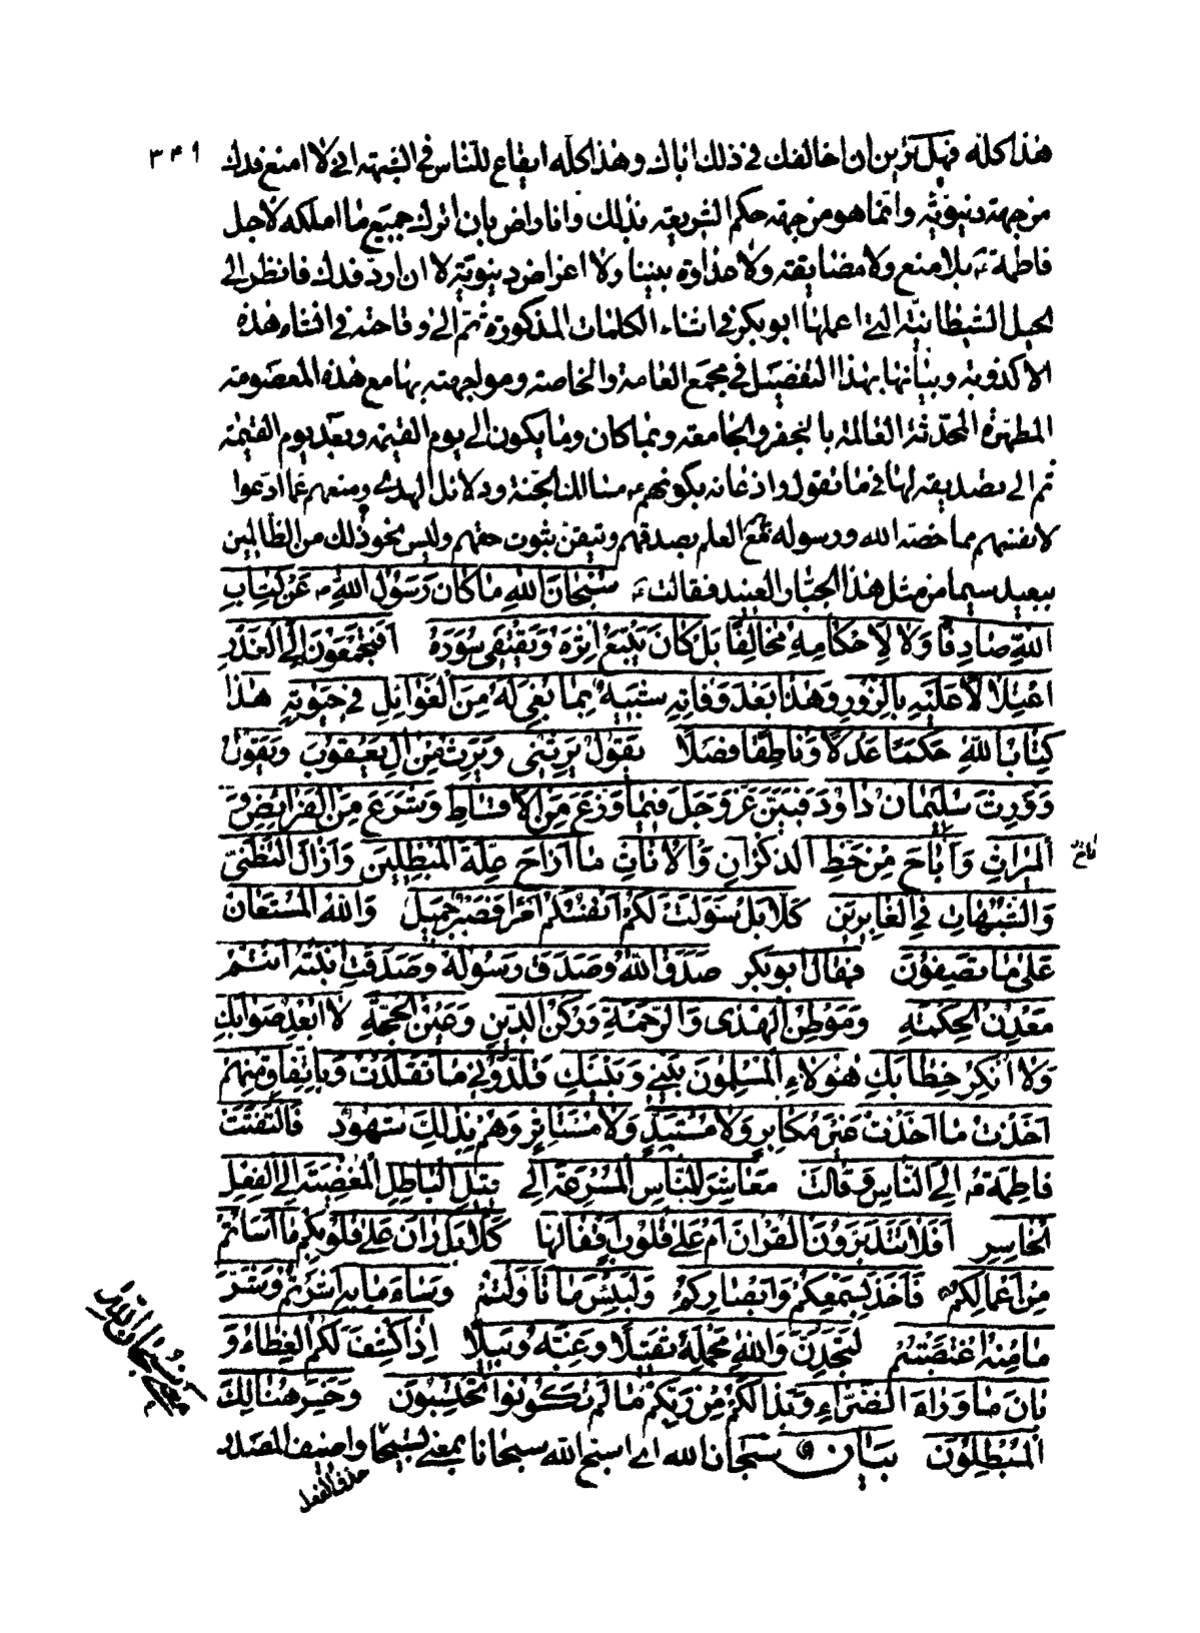 ٣٤٩
هذا كله فهل ترين ان اخالفك في ذلك اباك وهذا كله ايقاع للناس في الشبهة اني لا امنع فدك
من جهة دنيوية وانما هو من جهة حكم الشريعة بذلك وانا راض بان اترك جميع ما املكه لاجل
فاطمة ع بلا منع ولا مضايقة ولا عداوة بيننا ولا اعراض دنيوية لا ان ارد فدك فانظر الى
الحيل الشيطانية التي اعملها ابوبكر في اثناء الكلمات المذكورة ثم الى وقاحته في افشاء هذه
الاكذوبة وبيانها بهذا التفصيل في مجمع العامة والخاصة ومواجهته بها مع هذه المعصومة
المطهرة المحدثة العالمة بالجفر والجامعة وبما كان وما يكون الى يوم القيمة وبعد يوم القيمة
ثم الى تصديقه لها في ما تقول واذعانه بكونهم ع مسالك الجنة ودلائل الهدى ومنعهم عما ادعوا
لانفسهم مما خصه الله ورسوله مع العلم بصدقهم وتيقن ثبوت حقهم وليس نحو ذلك من الظالمين
ببعيد سيما من مثل هذا الجبار العنيد فقالت ع سُبْحانَ اللهِ ما كانَ رَسُولُ اللهِ ص عَنْ كِتابِ
اللهِ صادِفًا وَلا لِاَحْكامِهِ مُخالِفًا بَلْ كانَ يَتَّبِعُ اَثَرَهُ وَيَقْتَفِي سُوَرَهُ اَفَتَجْمَعُونَ اِلَى الْغَدْرِ
اعْتِلالًا عَلَيْهِ بِالزُّورِ وَهذا بَعْدَ وَفاتِهِ شَبيهٌ بِما بُغِيَ لَهُ مِنَ الْغَوائِلِ في حَيوتِهِ هذا
كِتابُ اللهِ حَكَمًا عَدْلًا وَناطِقًا فَصْلًا يَقُولُ يَرِثُني وَيَرِثُ مِنْ الِ يَعْقُوبَ وَيَقُولُ
وَوَرِثَ سُلَيْمانُ داوُدَ فَبَيَّنَ عَزَّ وَجَلَّ فيما وَزَّعَ مِنَ الْاَقْساطِ وَشَرَعَ مِنَ الْفَرائِضِ وَ
الْميراثِ وَاَباحَ مِنْ حَظِّ الذُّكْرانِ وَالْاِناثِ ما اَزاحَ عِلَّةَ الْمُبْطِلينَ وَاَزالَ التَّظَنّي
وَالشُّبُهاتِ فِي الْغابِرينَ كَلّا بَلْ سَوَّلَتْ لَكُمْ اَنْفُسُكُمْ اَمْرًا فَصَبْرٌ جَميلٌ وَاللهُ الْمُسْتَعانُ
عَلى ما تَصِفُونَ فقال ابوبكر صَدَقَ اللهُ وَصَدَقَ رَسُولُهُ وَصَدَقَتِ ابْنَتُهُ اَنْتُمْ
مَعْدِنُ الْحِكْمَةِ وَمَوْطِنُ الْهُدى وَالرَّحْمَةِ وَرُكْنُ الدّينِ وَعَيْنُ الْحُجَّةِ لا اُبْعِدُ صَوابَكِ
وَلا اُنْكِرُ خِطابَكِ هؤُلاءِ الْمُسْلِمُونَ بَيْني وَبَيْنَكِ قَلَّدُوني ما تَقَلَّدْتُ وَبِاتِّفاقٍ مِنْهُمْ
اَخَذْتُ ما اَخَذْتُ غَيْرَ مُكابِرٍ وَلا مُسْتَبِدٍّ وَلا مُسْتَأْثِرٍ وَهُمْ بِذلِكَ شُهُودٌ فَالْتَفَتَتْ
فاطِمَةُ ع اِلَى النّاسِ وَقالَتْ مَعاشِرَ النّاسِ الْمُسْرِعَةِ اِلى قيلِ الْباطِلِ الْمُغْضِيَةِ اِلَى الْفِعْلِ
الْخاسِرِ اَفَلا تَتَدَبَّرُونَ الْقُرْانَ اَمْ عَلى قُلُوبٍ اَقْفالُها كَلّا بَلْ رانَ عَلى قُلُوبِكُمْ ما اَسَأْتُمْ
مِنْ اَعْمالِكُمْ فَاَخَذَ بِسَمْعِكُمْ وَاَبْصارِكُمْ وَلَبِئْسَ ما تَاَوَّلْتُمْ وَساءَ ما بِهِ اَشَرْتُمْ وَشَرَّ
ما مِنْهُ اعْتَضْتُمْ لَتَجِدُنَّ وَاللهِ مَحْمِلَهُ ثَقيلًا وَغِبَّهُ وَبيلًا اِذا كُشِفَ لَكُمُ الْغِطاءُ وَ
بانَ ما وَراءَ الضَّرّاءِ وَبَدا لَكُمْ مِنْ رَبِّكُمْ ما لَمْ تَكُونُوا تَحْتَسِبُونَ وَخَسِرَ هُنالِكَ
الْمُبْطِلُونَ بيان سبحان الله اي اسبح الله سبحانا بمعنى تسبيحا واضيف المصدر
حذف الفعل